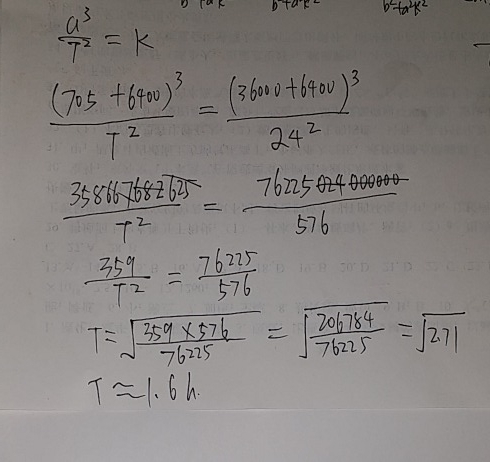 a³/T² = K
(705+6400)³/T² = (36000+6400)³/24²
358667682625/T² = 76225024000000/576
359/T² = 76225/576
T=√(359×576/76225) = √(206784/76225) = √2.71
T≈1.6h.